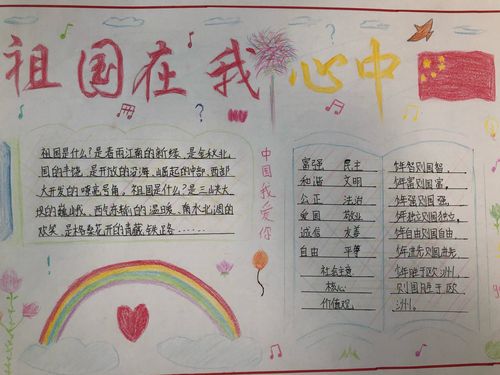 祖国在我心中
祖国是什么?是江南的新绿,是金秋北
国的丰饶,是开放的沿海,崛起的中部,西部
大开发的嘹亮号角。祖国是什么?是三峡大
坝的西气东输的温暖、南水北调的
欢笑,是格桑花开的青藏铁路……
中国我爱你
富强 民主
和谐 文明
公正 法治
爱国 敬业
诚信 友善
自由 平等
社会主义
核心
价值观
少年智则国智,
少年富则国富,
少年强则国强,
少年独立则国独立,
少年自由则国自由
少年进步则国进步
少年胜于欧洲,
则国胜于欧
洲。